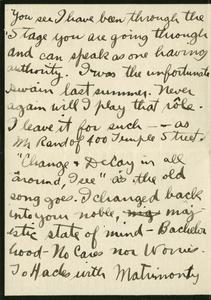 You see I have been through the
stage you are going through
and can speak as one having
authority. I was the unfortunate
swain last summer. Never
again will I play that rôle.
I leave it for such -- as
Mr Rand of 400 Temple Street.
"Change & Decay in all
around, I see" as the old
song goes. I changed back
into your noble, maj
estic state of mind - Bachelor
hood - No Cares nor Worries.
To Hades with Matrimony